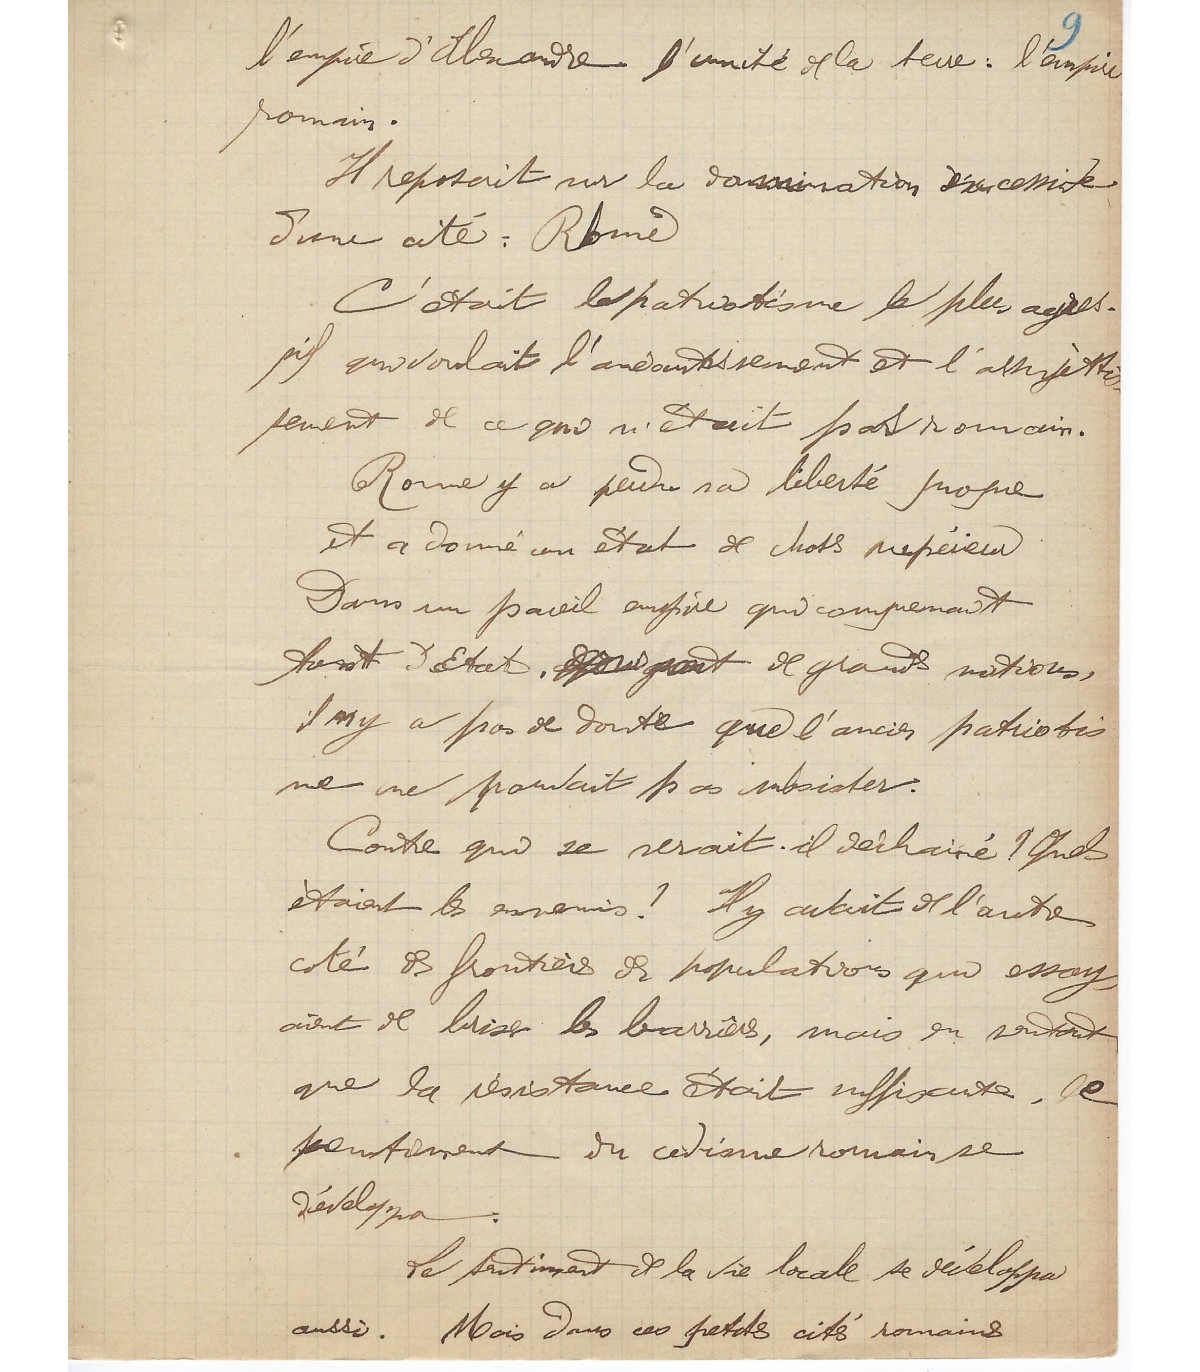 9
l'empire d'Alexandre l'unité de la terre : l'empire
romain.
Il reposait sur la domination excessive
d'une cité : Rome
C'était le patriotisme le plus agres-
sif qui voulait l'anéantissement et l'assujettis
sement de ce qui n'était pas romain.
Rome y a perdu sa liberté propre
et a donné un état de chose supérieur
Dans un pareil empire qui comprenait
tant d'Etats, de grandes nations,
il n'y a pas de doute que l'ancien patriotis
me ne pouvait pas subsister.
Contre qui se serait-il déchainé ? Quels
étaient les ennemis ? Il y avait de l'autre
coté des frontières des populations qui essay
aient de briser les barrières, mais en sentant
que la résistance était suffisante, le
sentiment du civisme romain se
développa.
Le sentiment de la vie locale se développa
aussi. Mais dans ces petites cités romaines